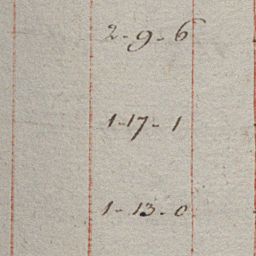 2-9-6
1-17-1
1-13-0